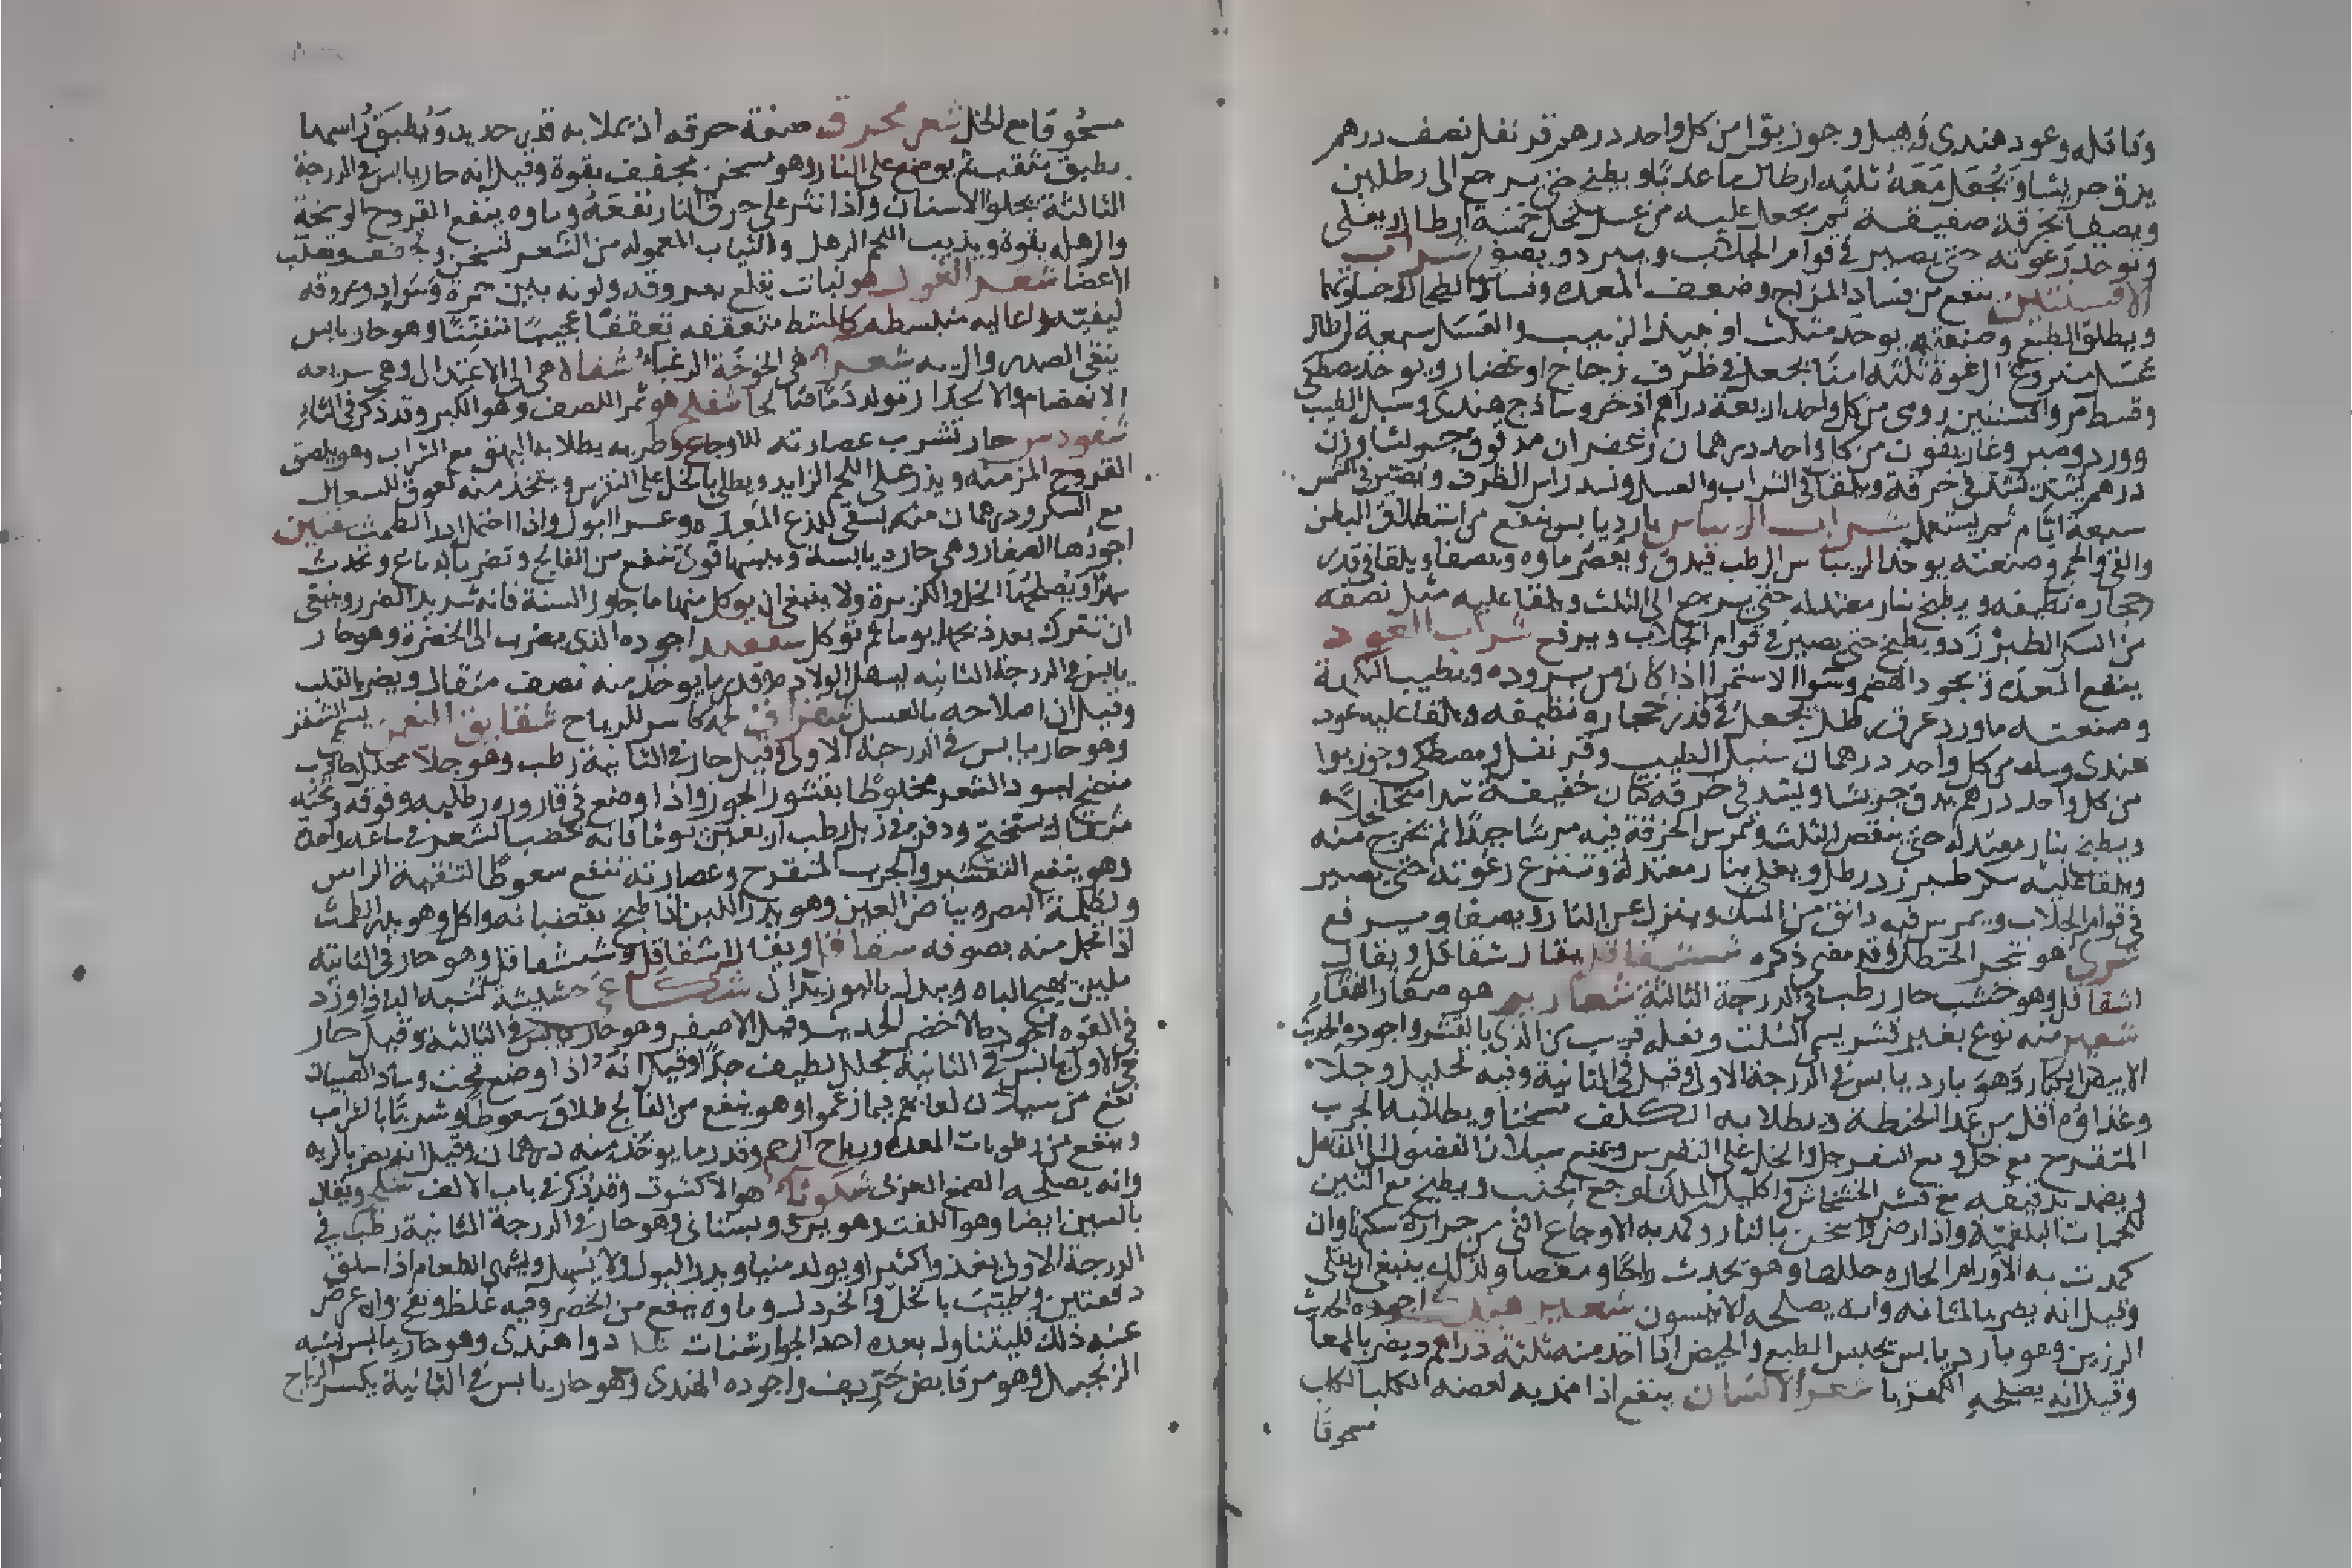 وقاقله وعود هندى وهيل وجوز بوّا من كل واحد درهم قرنفل نصف درهم
يدق جريشا ويجعل معه ثلثه ارطال ما عذبًا ويطبخ حتى يرجع الى رطلين
ويصفا بخرقة صفيقة ثم يجعل عليه من عسل نحل خمسة ارطال ويغلى
وتوخذ رغوته حتى يصير فى قوام الجلاب ويبرد ويصفى شراب
الافسنتين ينفع من فساد المزاج وضعف المعده وفساد الطحال وصلابتها
ويطلق الطبع وصنعته يوخذ مثلث او جيد الزبيب والعسل سبعة ارطال
عسل منزوع الرغوة ثلثه امنا يجعل فى ظرف زجاج او غضار ويوخذ مصطكى
وقسط مر وافسنتين رومى من كل واحد اربعة دراهم اذخر وساذج هندى وسنبل الطيب
وورد وصبر وغاريقون من كل واحد درهمان زعفران مدقوق جريشا وزن
درهم يشد فى خرقة ويلقا فى الشراب والعسل ويسد راس الظرف ويصير فى الشمس
سبعة ايام ثم يستعمل شراب الريباس بارد يابس ينفع من استطلاق البطن
والقى والحمى وصنعته يوخذ الريباس الرطب فيدق ويعصر ماوه ويصفا ويلقا فى قدر
حجاره نظيفه ويطبخ بنار معتدله حتى يرجع الى الثلث ويلقا عليه مثل نصفه
من السكر الطبرزد ويطبخ حتى يصير فى قوام الجلاب ويرفع شراب العود
ينفع المعده ويجود الهضم وسو الاستمرا اذا كان من بروده ويطيب النكهة
وصنعته ماورد عرق رطل يجعل فى قدر حجاره نظيفه ويلقا عليه عود
هندى وسك من كل واحد درهمان سنبل الطيب وقرنفل ومصطكى وجوز بوا
من كل واحد درهم يدق جريشا ويشد فى خرقة كتان خفيفة شدا متخلخلا
ويطبخ بنار معتدله حتى ينقص الثلث وتمرس الخرقة فيه مرسًا جيدًا ثم تخرج منه
ويلقا عليه سكر طبرزد رطل ويغلى بنار معتدلة وتنزع رغوته حتى يصير
فى قوام الجلاب ويمرس فيه دانق من المسك وينزل عن النار ويصفا ويرفع
شرى هو شجر الحنظل وقد مضى ذكره ششقاقل يقال شقاقل ويقال
اشقاقل وهو خشب حار رطب فى الدرجة الثالثة شعارير هو صغار القثا
شعير منه نوع بغير قشر يسمى السلت وفعله قريب من الذى بالقشر واجوده الحديث
الابيض الكبار وهو بارد يابس فى الدرجة الاولى وقيل فى الثانية وفيه تحليل وجلا
وغذاوه اقل من غذا الحنطة ويطلا به الكلف مسخنا ويطلا به الجرب
المتقرح مع خل ومع السفرجل والخل على النقرس ويمنع سيلان الفضول الى المفاصل
ويضمد بدقيقه مع قشر الخشخاش واكليل الملك لوجع الجنب ويطبخ مع التين
للحميات البلغميّة واذا رض وسخن بالنار وكمد به الاوجاع التى من حرارة سكنها وان
كمدت به الاورام الحاره حللها وهو يحدث رياحًا ومغصا ولذلك ينبغى ان يقلى
وقيل انه يضر بالمثانه وانه يصلحه الانيسون شعير هندى اجوده الحديث
الرزين وهو بارد يابس يحبس الطبع والحيض اذا اخذ منه ثلثة دراهم ويضر بالمعا
وقيل انه يصلحه الكثيرا شعر الانسان ينفع اذا ضمد به لعضه الكلب الكلب
مسحوقا
مسحوقا مع الخل شعر محرق صفة حرقه ان يملا به قدر حديد ويطبق راسها
بطبق مثقب ثم يوضع على النار وهو مسخن مجفف بقوة وقيل انه حار يابس فى الدرجة
الثالثة يجلو الاسنان واذا نثر على حرق النار نفعه وماوه ينفع القروح الوسخة
والرهله بقوة ويذيب اللحم الرهل والثياب المعموله من الشعر تسخن وتجفف وتصلب
الاعضا شعر الغول هو نبات يقلع بعروقه ولونه بين حمرة وسواد وعروقه
ليفيّه واعاليه منبسطه كالمشط متعقفه تعقفًا عجيبًا متفننًا وهو حار يابس
ينقى الصدر والريه شعرا هى الخوخة الزغبا شفاه هى الى الاعتدال وهى سريعه
الانهضام والانحدار تولد دمًا صالحًا شفلح هو ثمر اللصف وهو الكبر وقد ذكر فى الثمار
حار تشرب عصارته للاوجاع يطلا به البهق مع الشراب وهو يلصق
القروح المزمنه ويذر على اللحم الزايد ويطلى بالخل على النقرس ويتخذ منه لعوق للسعال
مع السكر ودرهمان منه يسقى للذع المعده وعسر البول واذا احتمل ادر الطمث شفنين
اجودها الصغار وهى حارة يابسة ويبسها قوى تنفع من الفالج وتضر بالدماغ وتحدث
سهرًا ويصلحها الخل والكزبرة ولا ينبغى ان يوكل منها ما جاوز السنة فانه شديد الضرر وينبغى
ان تترك بعد ذبحها يوما ثم توكل اجوده الذى يضرب الى الخضرة وهو حار
يابس فى الدرجة الثانيه يسهل الولاده وقدر ما يوخذ منه نصف مثقال ويضر بالقلب
وقيل ان اصلاحه بالعسل كاسر للرياح شقايق النعمن يسمى الشقر
وهو حار يابس فى الدرجة الاولى وقيل حار فى الثانية رطب وهو جلا محلل جاذب
منضج يسود الشعر مخلوطًا بقشور الجوز واذا وضع فى قاروره رطليه وفوقه وتحته
ودفن فى زبل رطب اربعين يومًا فانه يخضب الشعر فى ساعه واحدة
وهو ينفع التقشر والجرب المتقرح وعصارته تنفع سعوطًا لتنقية الراس
وظلمة البصر وبياض العين وهو يدر اللبن اذا طبخ بقضبانه واكل وهو يدر الطمث
اذا تحمل منه بصوفه شقاقل ويقال له اشقاقل وششقاقل وهو حار فى الثانية
ملين يهيج الباه وبدله بالبوزيدان شكاعى حشيشه تشبه الباذاورد
فى القوه اجوده الاخضر الحديث وقيل الاصفر وهو حار يابس فى الثالثه وقيل حار
فى الاولى يابس فى الثانية محلل لطيف جدًا وقيل انه اذا وضع تحت وساد الصبيان
نفع من سيلان لعابهم فيما زعموا وهو ينفع من الفالج طلا وسعوطًا وشربًا بالشراب
وينفع من رطوبات المعده ورياح الرحم وقدر ما يوخذ منه درهمان وقيل انه يضر بالريه
وانه يصلحه الصمغ العربى شكوثا هو الاكشوت وقد ذكر فى باب الالف شلجم ويقال
بالسين ايضا وهو اللفت وهو برى وبستانى وهو حار فى الدرجة الثانية رطب فى
الدرجة الاولى يغذوا كثيرا ويولد منيا ويدر البول ولا يسهل ويشهى الطعام اذا سلق
دفعتين وطيب بالخل والخردل وماوه ينفع من الخصر وفيه غلظ ونفخ وان عرض
عنه ذلك فليتناول بعده احد الجوارشنات شل دوا هندى وهو حار يابس يشبه
الزنجبيل وهو مر قابض حرّيف واجوده الهندى وهو حار يابس فى الثانية يكسر الرياح